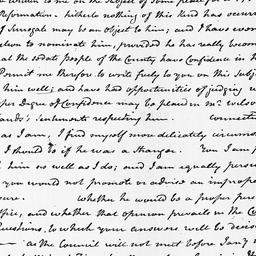 written to me on the subject of some
Reformation. hitherto nothing of this kind has occure
of Surrogate may be an object to him; and I have ever
to nominate him, provided he has really becom
at the sedate people of the County have Confidence in h
Permit me therefore to write fully to you on this Subj
him well; and have had opportunities of judging w
per Degree of Confidence may be placed in Mr. Wilso
Sentiments respecting him. Connecte
as I am, I find myself more delicately circums
I should do if he was a Stranger. You am f
him so well as I do; and I am equally persu
you would not promote or advise an improper
sure. Whether he would be a proper pers
ffice, and whether that opinion prevails in the Co
Questions, to which your answers will be decisi
as the Council will not meet before Jany n